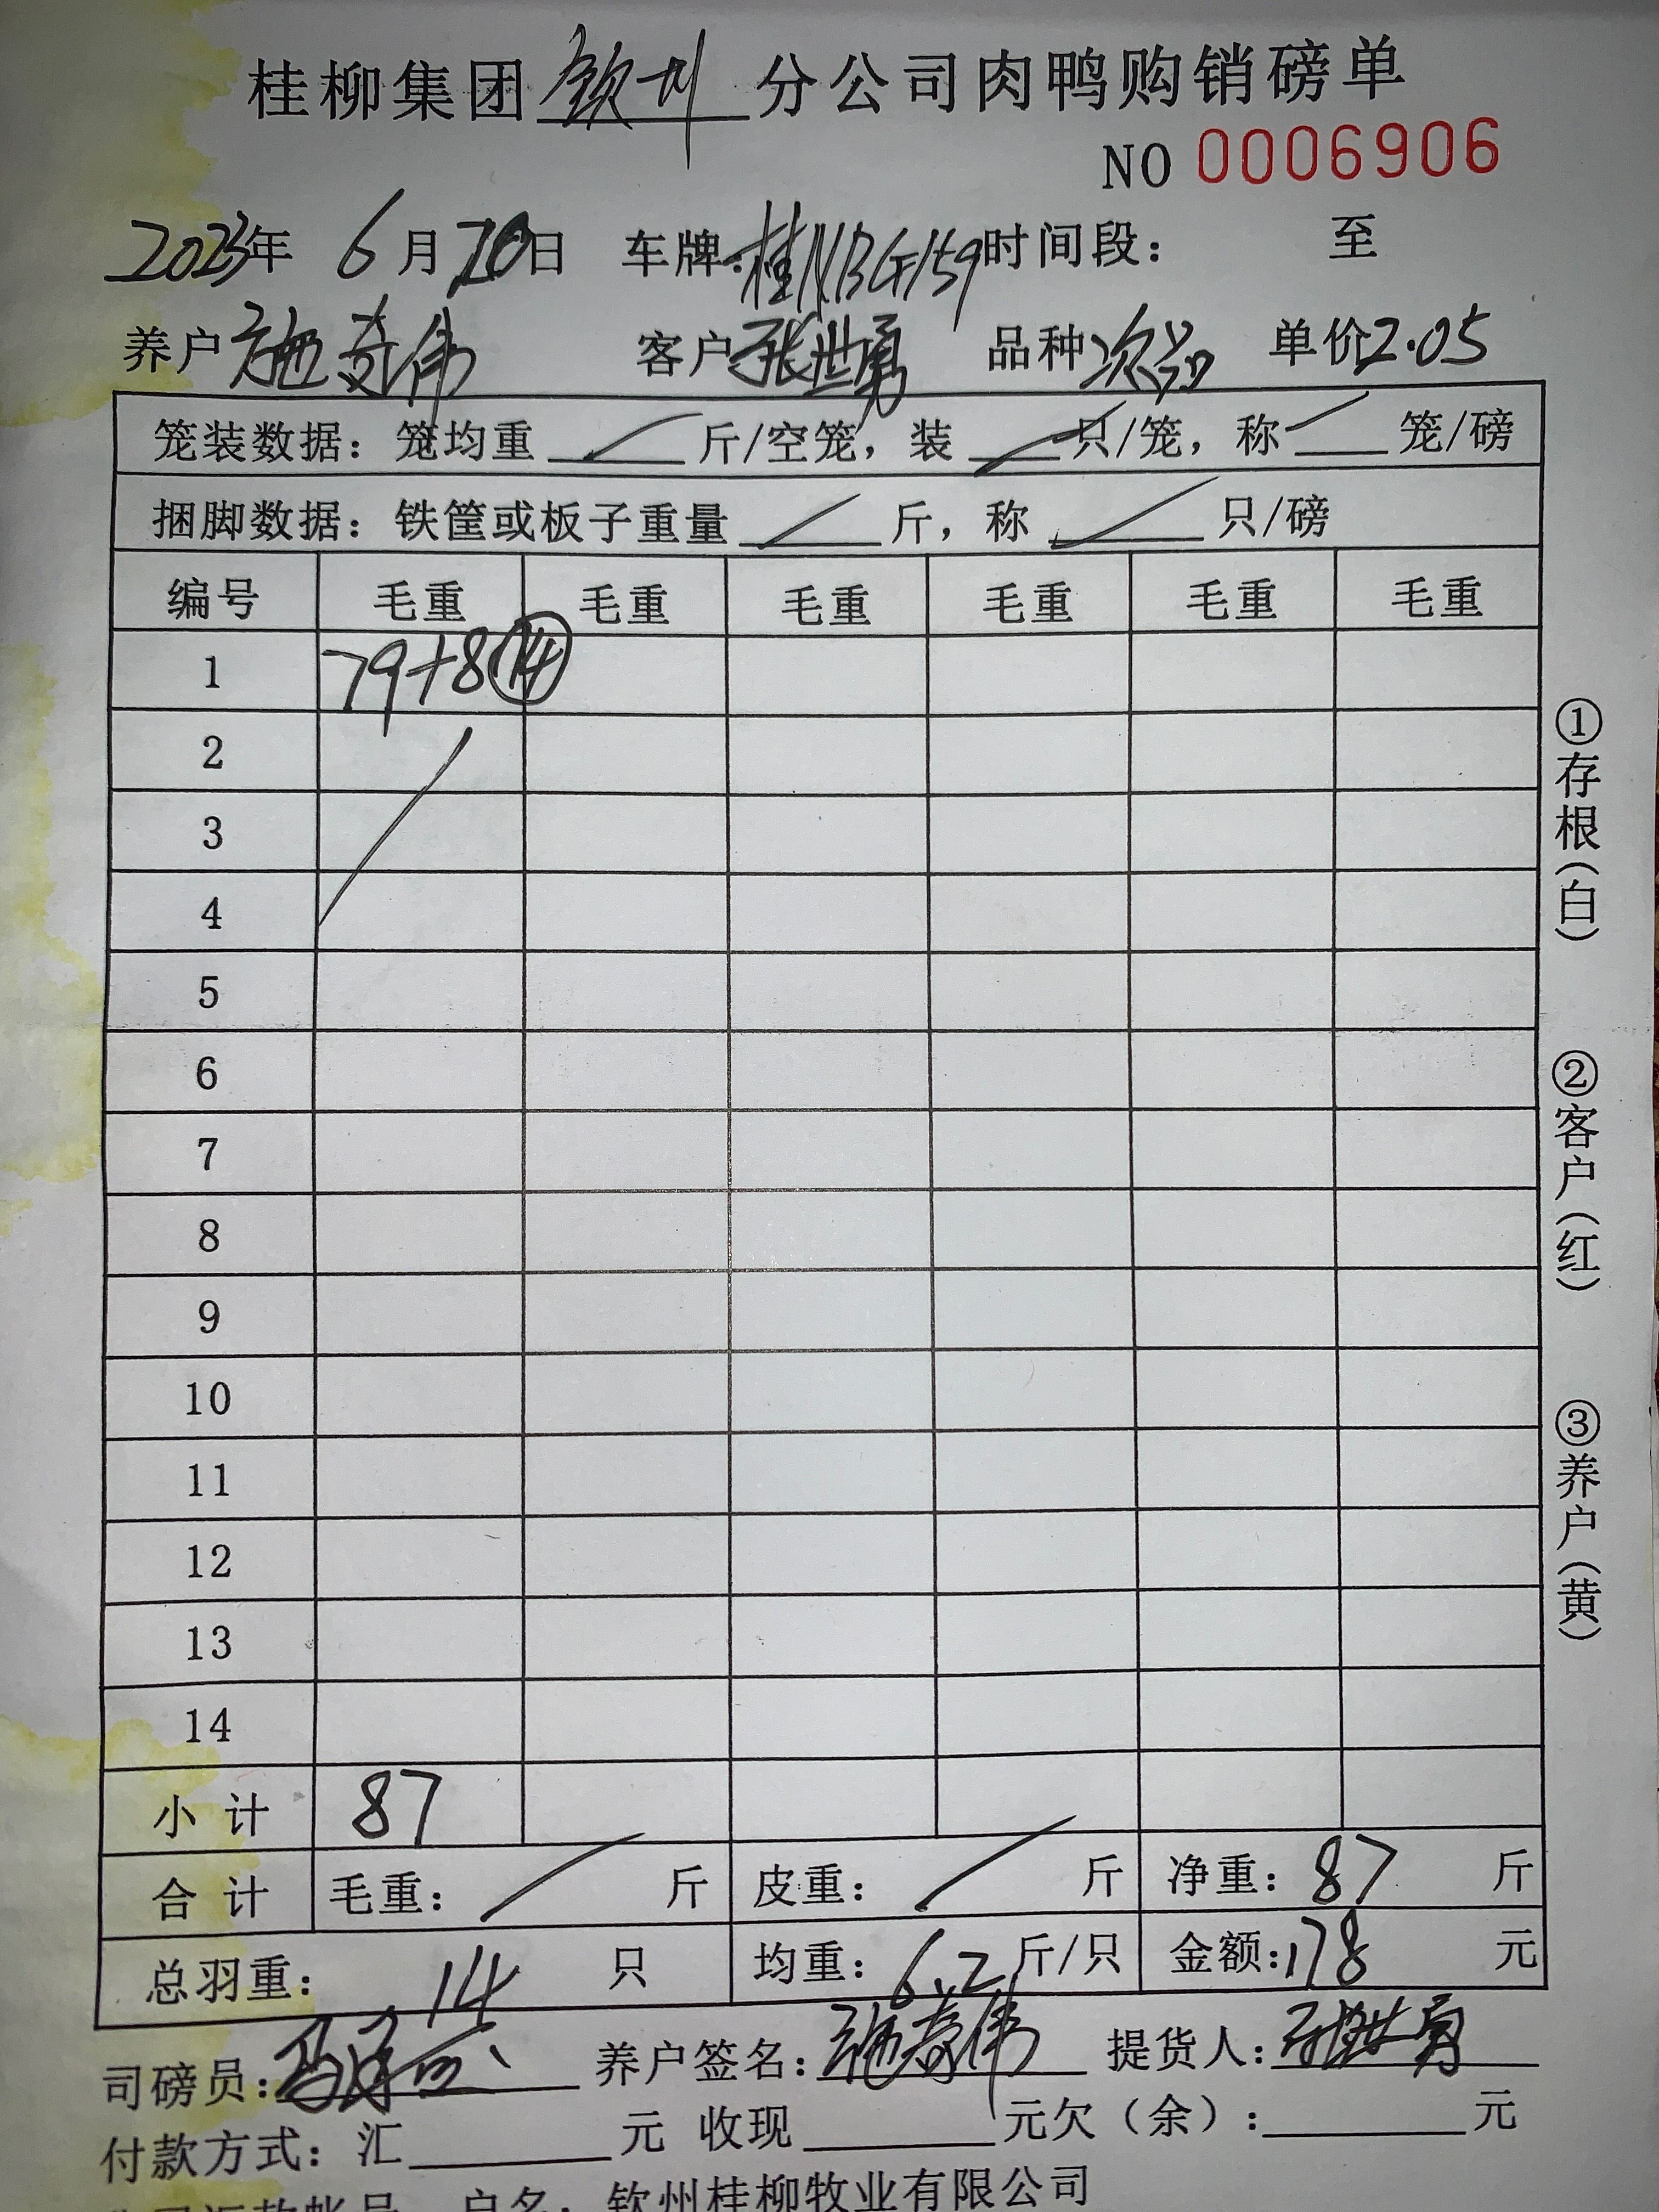 桂柳集团 钦州 分公司肉鸭购销磅单
NO 0006906
2023年 6月20日 车牌:桂NBG159 时间段: 至
养户 施奇伟 客户 张世勇 品种 次品 单价 2.05
笼装数据: 笼均重 / 斤/空笼, 装 / 只/笼, 称 / 笼/磅
捆脚数据: 铁筐或板子重量 / 斤, 称 / 只/磅
编号 毛重 毛重 毛重 毛重 毛重 毛重
1 79+8 ⑭
2
3
4
5
6
7
8
9
10
11
12
13
14
小计 87
合计 毛重: / 斤 皮重: / 斤 净重: 87 斤
总羽重: 14 只 均重: 6.2 斤/只 金额: 178 元
司磅员: 养户签名: 施奇伟 提货人: 张世勇
付款方式: 汇 元 收现 元欠(余): 元
户名: 钦州桂柳牧业有限公司
①存根(白)
②客户(红)
③养户(黄)